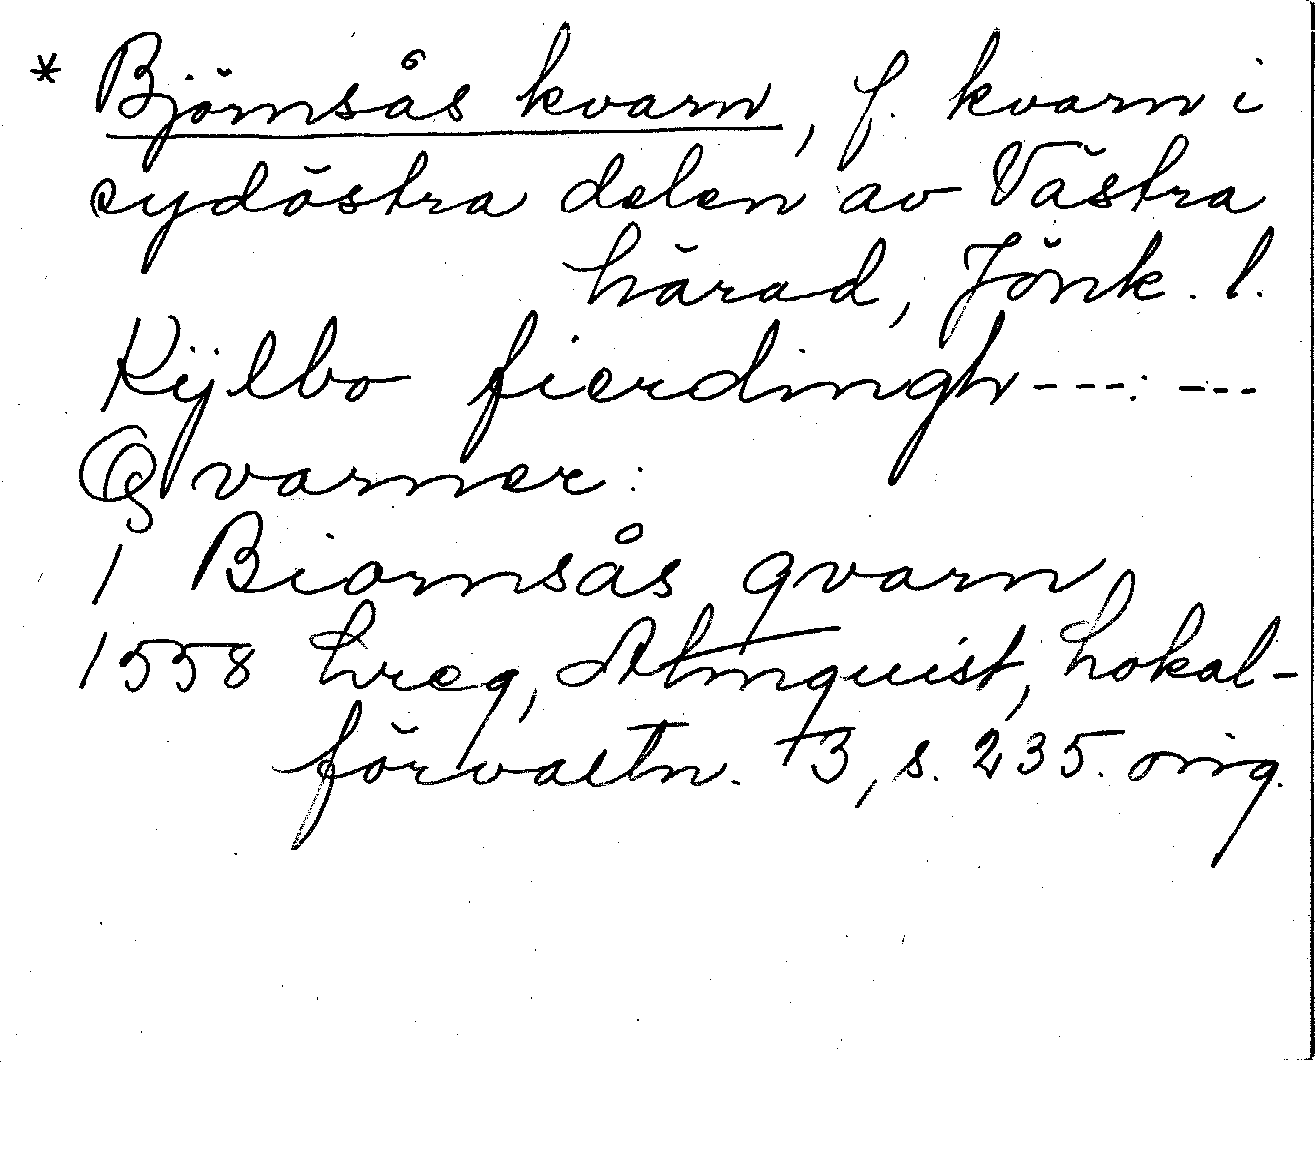 * Björnsås kvarn, f. kvarn i
sydöstra delen av Västra
härad, Jönk. l.
Kÿlbo fierdingh ---:---
Qvarner:
1 Biornsås qvarn
1558 hreg, Almquist, Lokal-
förvaltn. 3, s. 235. orig.